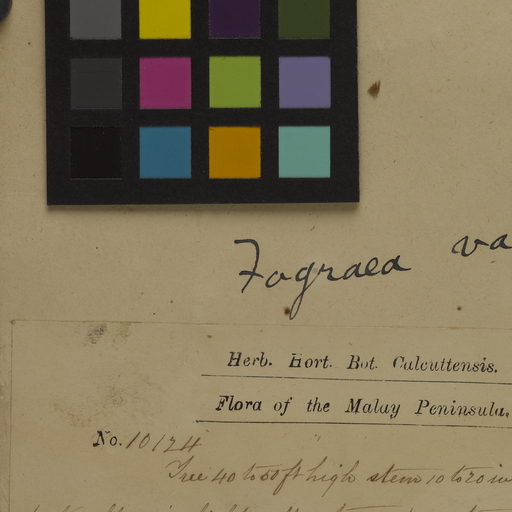 Fagraea va
Herb. Hort. Bot. Calcuttensis.
Flora of the Malay Peninsula.
No. 10124
Tree 40 to 50 ft high stem 10 to 20 in